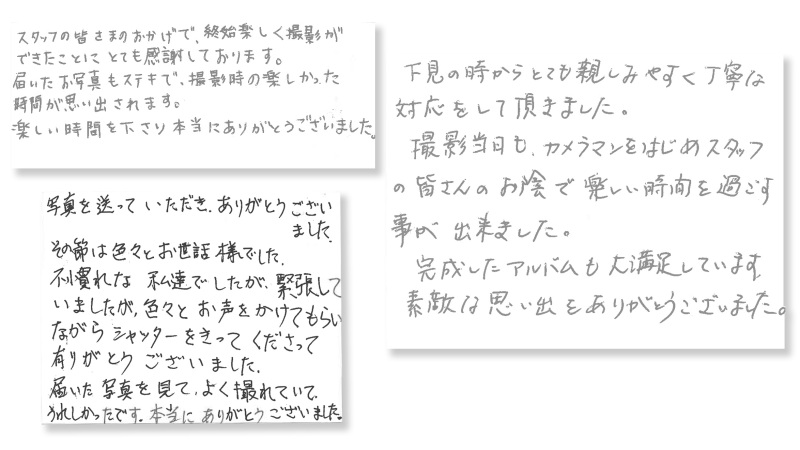 スタッフの皆さまのおかげで、終始楽しく撮影が
できたことにとても感謝しております。
届いたお写真もステキで、撮影時の楽しかった
時間が思い出されます。
楽しい時間を下さり本当にありがとうございました。
写真を送っていただき、ありがとうござい
ました。
その節は色々とお世話様でした。
不慣れな私達でしたが、緊張して
いましたが、色々とお声をかけてもらい
ながらシャッターをきってくださって
有りがとうございました。
届いた写真を見て、よく撮れていて、
うれしかったです。本当にありがとうございました。
下見の時からとても親しみやすく丁寧な
対応をして頂きました。
撮影当日も、カメラマンをはじめスタッフ
の皆さんのお陰で楽しい時間を過ごす
事が出来ました。
完成したアルバムも大満足しています
素敵な思い出をありがとうございました。